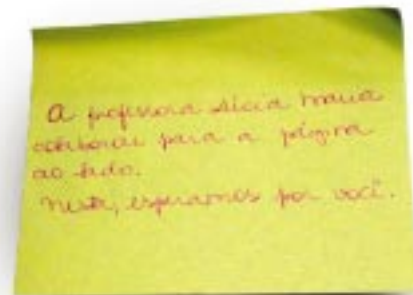 A professora Alícia Maria
colaborou para a página
ao lado.
Nesta, esperamos por você.